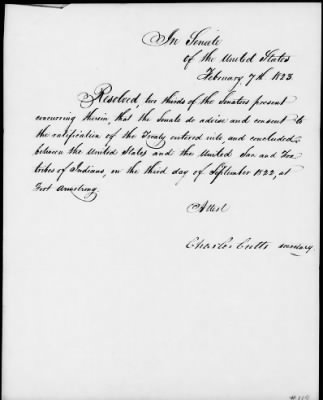 In Senate
of the United States
February 7th 1823
Resolved, two thirds of the Senators present
concurring therein, that the Senate do advise and consent to
the ratification of the Treaty entered into, and concluded
between the United States and the United Sac and Fox
tribes of Indians, on the third day of September 1822, at
Fort Armstrong.
Attest
Charles Cutts secretary